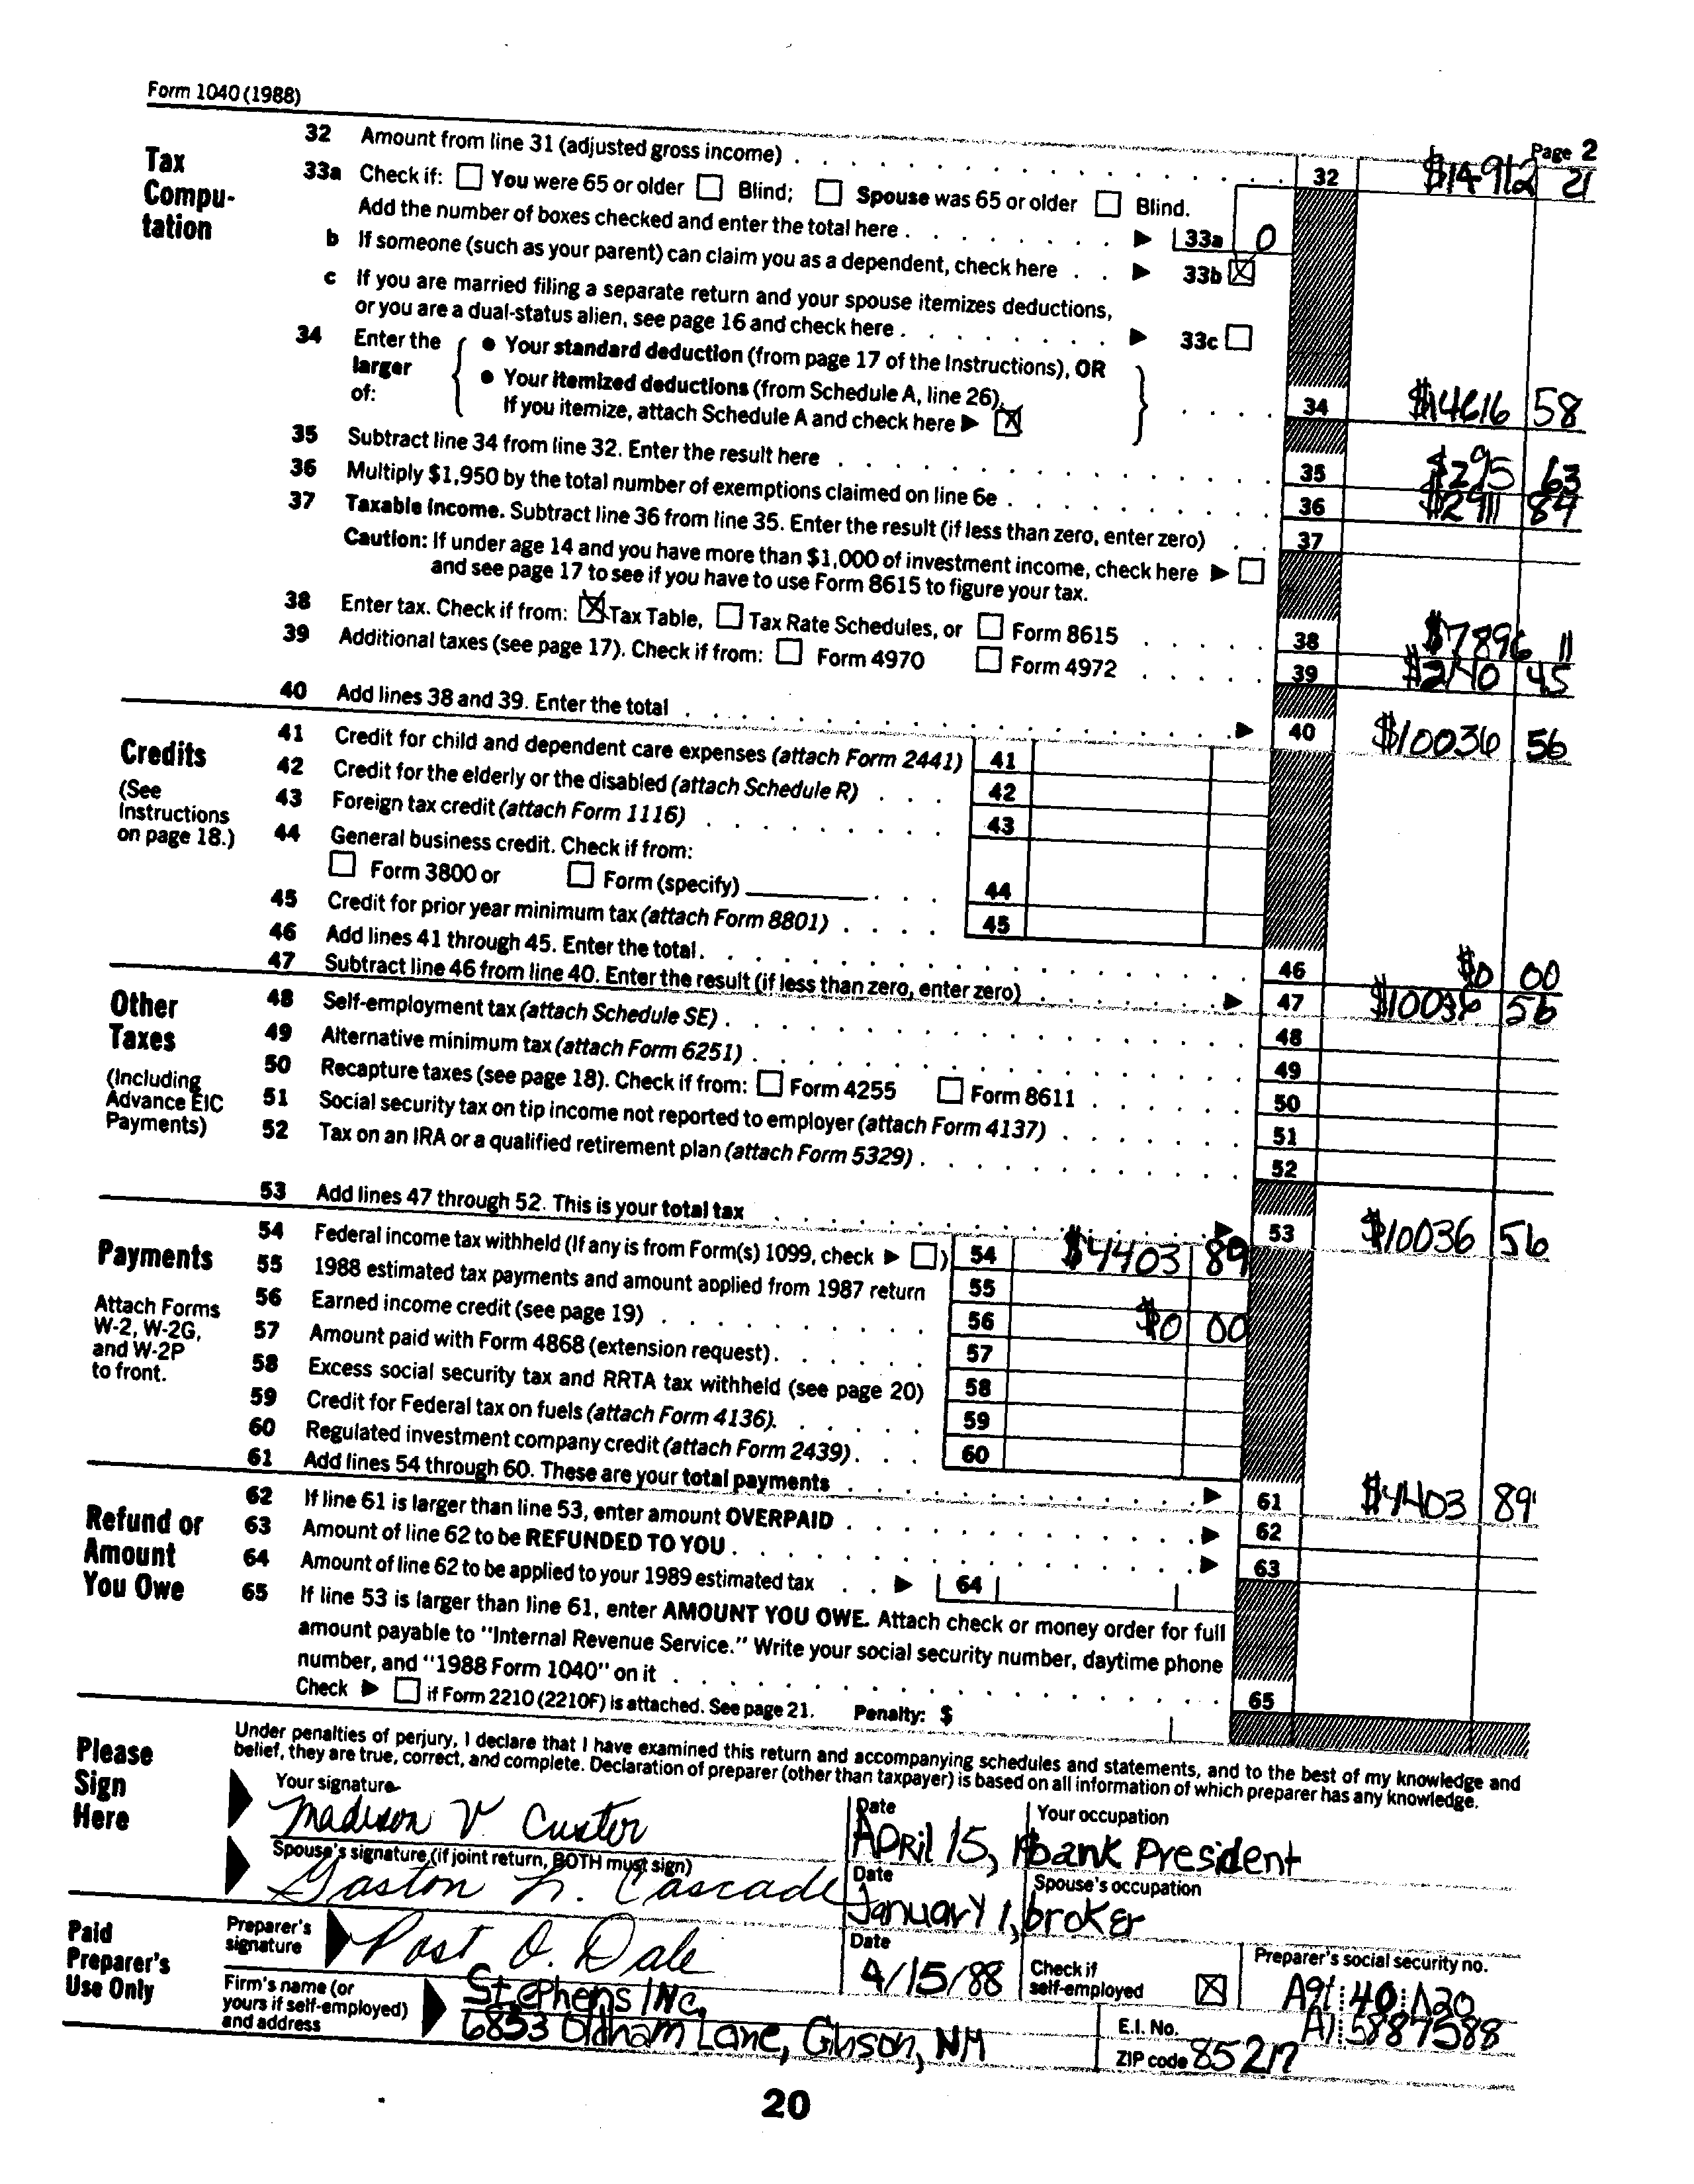 Form 1040 (1988)
Page 2
Tax Compu-tation
32 Amount from line 31 (adjusted gross income) 32 $14912 21
33a Check if: You were 65 or older Blind; Spouse was 65 or older Blind.
Add the number of boxes checked and enter the total here 33a 0
b If someone (such as your parent) can claim you as a dependent, check here 33b X
c If you are married filing a separate return and your spouse itemizes deductions,
or you are a dual-status alien, see page 16 and check here 33c
34 Enter the larger of: { • Your standard deduction (from page 17 of the Instructions), OR
• Your itemized deductions (from Schedule A, line 26).
If you itemize, attach Schedule A and check here X } 34 $14616 58
35 Subtract line 34 from line 32. Enter the result here 35 $295 63
36 Multiply $1,950 by the total number of exemptions claimed on line 6e 36 $2911 84
37 Taxable income. Subtract line 36 from line 35. Enter the result (if less than zero, enter zero) 37
Caution: If under age 14 and you have more than $1,000 of investment income, check here
and see page 17 to see if you have to use Form 8615 to figure your tax.
38 Enter tax. Check if from: X Tax Table, Tax Rate Schedules, or Form 8615 38 $7896 11
39 Additional taxes (see page 17). Check if from: Form 4970 Form 4972 39 $2140 45
40 Add lines 38 and 39. Enter the total 40 $10036 56
Credits
(See Instructions on page 18.)
41 Credit for child and dependent care expenses (attach Form 2441) 41
42 Credit for the elderly or the disabled (attach Schedule R) 42
43 Foreign tax credit (attach Form 1116) 43
44 General business credit. Check if from:
Form 3800 or Form (specify) 44
45 Credit for prior year minimum tax (attach Form 8801) 45
46 Add lines 41 through 45. Enter the total. 46 $0 00
47 Subtract line 46 from line 40. Enter the result (if less than zero, enter zero) 47 $10036 56
Other Taxes
(Including Advance EIC Payments)
48 Self-employment tax (attach Schedule SE) 48
49 Alternative minimum tax (attach Form 6251) 49
50 Recapture taxes (see page 18). Check if from: Form 4255 Form 8611 50
51 Social security tax on tip income not reported to employer (attach Form 4137) 51
52 Tax on an IRA or a qualified retirement plan (attach Form 5329) 52
53 Add lines 47 through 52. This is your total tax 53 $10036 56
Payments
Attach Forms W-2, W-2G, and W-2P to front.
54 Federal income tax withheld (If any is from Form(s) 1099, check ) 54 $4403 89
55 1988 estimated tax payments and amount applied from 1987 return 55
56 Earned income credit (see page 19) 56 $0 00
57 Amount paid with Form 4868 (extension request) 57
58 Excess social security tax and RRTA tax withheld (see page 20) 58
59 Credit for Federal tax on fuels (attach Form 4136). 59
60 Regulated investment company credit (attach Form 2439) 60
61 Add lines 54 through 60. These are your total payments 61 $4403 89
Refund or Amount You Owe
62 If line 61 is larger than line 53, enter amount OVERPAID 62
63 Amount of line 62 to be REFUNDED TO YOU 63
64 Amount of line 62 to be applied to your 1989 estimated tax 64
65 If line 53 is larger than line 61, enter AMOUNT YOU OWE. Attach check or money order for full
amount payable to "Internal Revenue Service." Write your social security number, daytime phone
number, and "1988 Form 1040" on it 65
Check if Form 2210 (2210F) is attached. See page 21. Penalty: $
Please Sign Here
Under penalties of perjury, I declare that I have examined this return and accompanying schedules and statements, and to the best of my knowledge and
belief, they are true, correct, and complete. Declaration of preparer (other than taxpayer) is based on all information of which preparer has any knowledge.
Your signature Date Your occupation
Madison V. Custer APRil 15, bank President
Spouse's signature (if joint return, BOTH must sign) Date Spouse's occupation
Gaston L. Cascade January 1, broker
Paid Preparer's Use Only
Preparer's signature Post O. Dale Date 4/15/88 Check if self-employed X Preparer's social security no.
Firm's name (or yours if self-employed) and address Stephens INC, E.I. No.
6853 Oldham Lane, Gibson, NM ZIP code 85217
20